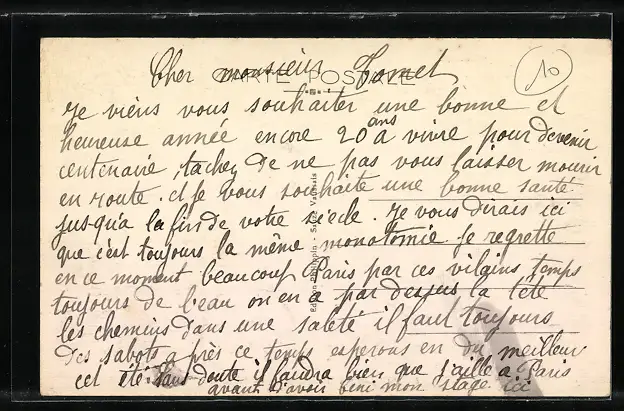 Cher monsieur Tomet
CARTE POSTALE
10
Je viens vous souhaiter une bonne et
heureuse année encore 20 ans a vivre pour devenir
centenaire, tachez de ne pas vous laisser mourir
en route. et je vous souhaite une bonne santé
jusqu'a la fin de votre siecle. je vous dirais ici
que c'est toujours la même monotomie je regrette
en ce moment beaucoup Paris par ces vilains temps
toujours de l'eau on en a par dessus la tête
les chemins dans une saleté il faut toujours
des sabots a près ce temps esperons en du meilleur
cet été. sans doute il faudra bien que j'aille a Paris
avant d'avoir fini mon stage ici
Edition